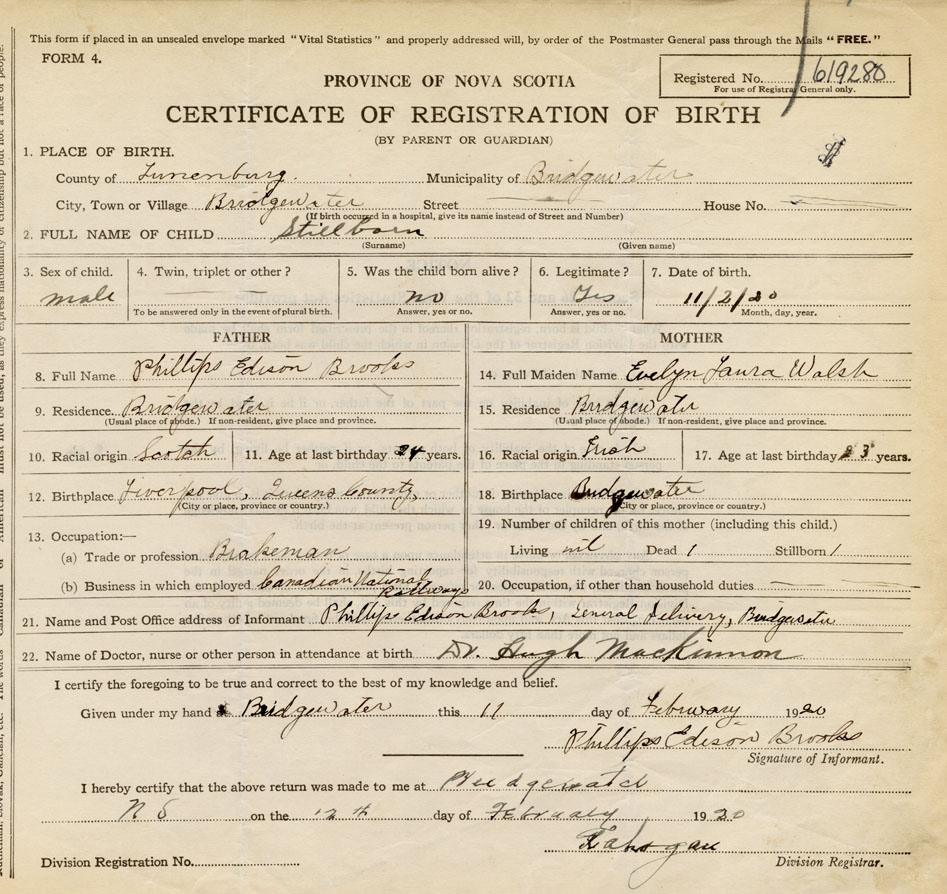 This form if placed in an unsealed envelope marked "Vital Statistics" and properly addressed will, by order of the Postmaster General pass through the Mails "FREE."
FORM 4.
Registered No. 619280
For use of Registrar General only.
PROVINCE OF NOVA SCOTIA
CERTIFICATE OF REGISTRATION OF BIRTH
(BY PARENT OR GUARDIAN)
1. PLACE OF BIRTH.
County of Lunenburg. Municipality of Bridgewater
City, Town or Village Bridgewater Street House No.
(If birth occurred in a hospital, give its name instead of Street and Number)
2. FULL NAME OF CHILD Stillborn
(Surname) (Given name)
3. Sex of child. 4. Twin, triplet or other? 5. Was the child born alive? 6. Legitimate? 7. Date of birth.
male no Yes 11/2/20
To be answered only in the event of plural birth. Answer, yes or no. Answer, yes or no. Month, day, year.
FATHER MOTHER
8. Full Name Phillips Edison Brooks 14. Full Maiden Name Evelyn Laura Walsh
9. Residence. Bridgewater 15. Residence Bridgewater
(Usual place of abode.) If non-resident, give place and province. (Usual place of abode.) If non-resident, give place and province.
10. Racial origin Scotch 11. Age at last birthday 24 years. 16. Racial origin Irish 17. Age at last birthday 23 years.
12. Birthplace Liverpool, Queens County, 18. Birthplace Bridgewater
(City or place, province or country.) (City or place, province or country.)
13. Occupation:— 19. Number of children of this mother (including this child.)
(a) Trade or profession Brakeman Living nil Dead 1 Stillborn 1
(b) Business in which employed Canadian National Railways 20. Occupation, if other than household duties
21. Name and Post Office address of Informant Phillips Edison Brooks, General Delivery, Bridgewater
22. Name of Doctor, nurse or other person in attendance at birth Dr. Hugh MacKinnon
I certify the foregoing to be true and correct to the best of my knowledge and belief.
Given under my hand at Bridgewater this 11 day of February 1920
Phillips Edison Brooks
Signature of Informant.
I hereby certify that the above return was made to me at Bridgewater
N S on the 12th day of February 1920
Division Registration No. Division Registrar.